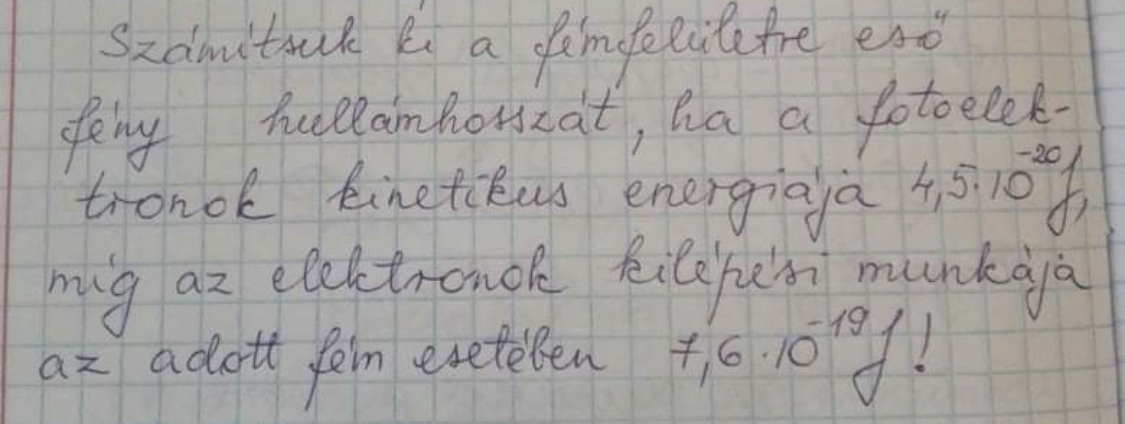 Számítsuk ki a fémfelületre eső
fény hullámhosszát, ha a fotoelek-
tronok kinetikus energiája 4,5·10⁻²⁰J,
míg az elektronok kilépési munkája
az adott fém esetében 7,6·10⁻¹⁹J!